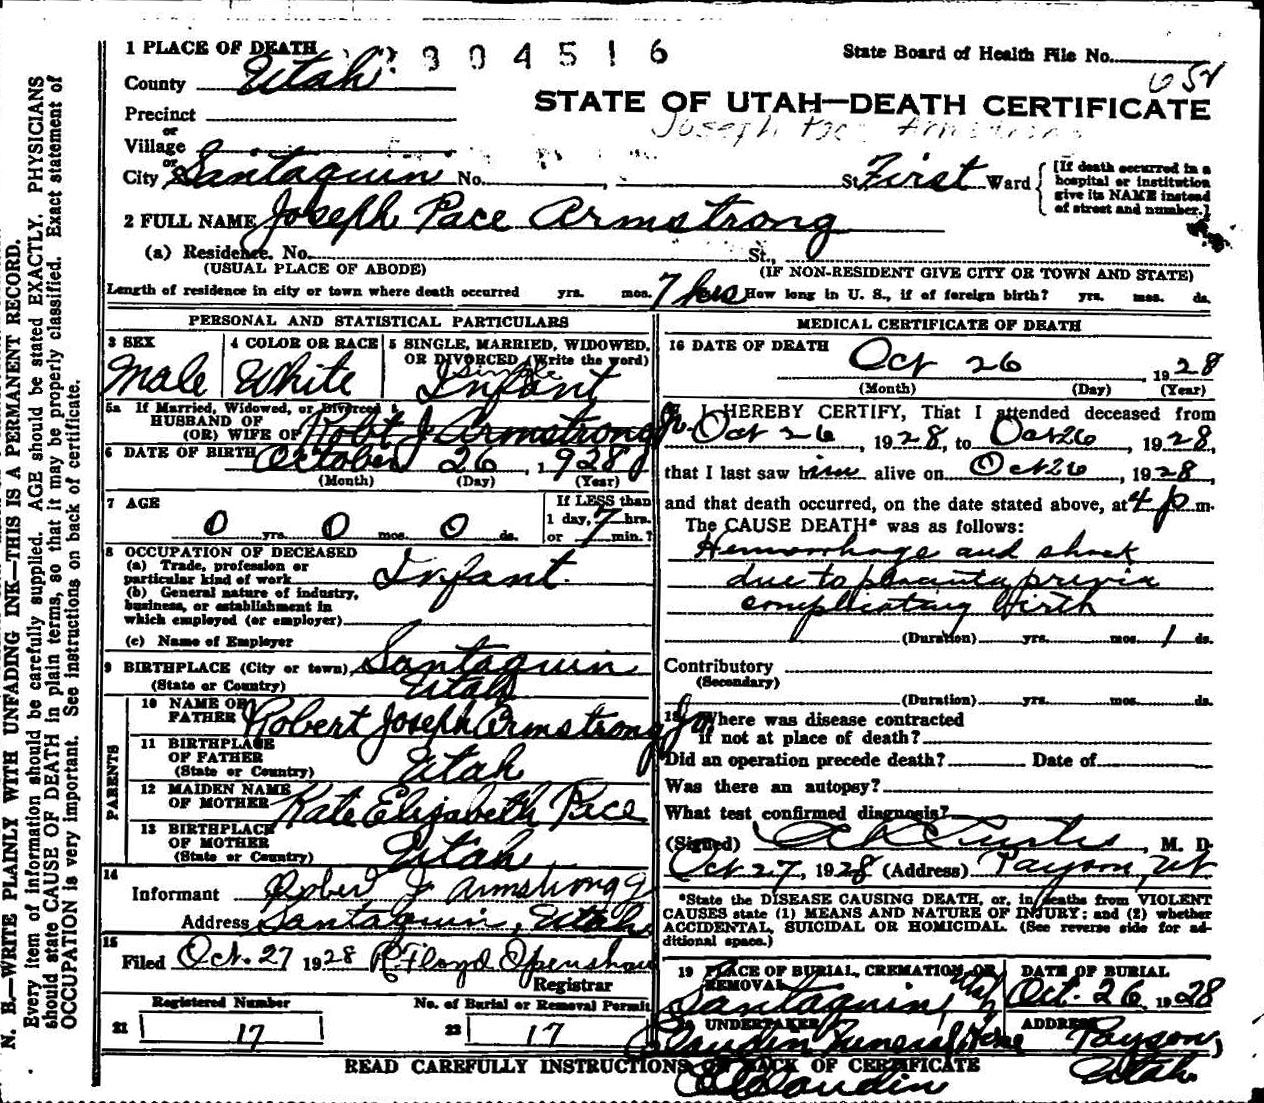 1 PLACE OF DEATH 2804516
State Board of Health File No. 658
County Utah
STATE OF UTAH—DEATH CERTIFICATE
Precinct
Joseph Pace Armstrong
or
Village
or
City Santaquin No. , St. First Ward
[If death occurred in a hospital or institution give its NAME instead of street and number.]
2 FULL NAME Joseph Pace Armstrong
(a) Residence. No. St.,
(USUAL PLACE OF ABODE) (IF NON-RESIDENT GIVE CITY OR TOWN AND STATE)
Length of residence in city or town where death occurred yrs. mos. 7 hrs How long in U. S., if of foreign birth? yrs. mos. ds.
PERSONAL AND STATISTICAL PARTICULARS
3 SEX
Male
4 COLOR OR RACE
White
5 SINGLE, MARRIED, WIDOWED,
OR DIVORCED (Write the word)
Single
Infant
5a If Married, Widowed, or Divorced
HUSBAND OF
(OR) WIFE OF Robt J Armstrong Jr.
6 DATE OF BIRTH October 26, 1928
(Month) (Day) (Year)
7 AGE
0 yrs. 0 mos. 0 ds.
If LESS than
1 day, 7 hrs.
or min.?
8 OCCUPATION OF DECEASED
(a) Trade, profession or
particular kind of work Infant.
(b) General nature of industry,
business, or establishment in
which employed (or employer)
(c) Name of Employer
9 BIRTHPLACE (City or town) Santaquin
(State or Country) Utah
PARENTS
10 NAME OF
FATHER Robert Joseph Armstrong Jr.
11 BIRTHPLACE
OF FATHER
(State or Country) Utah
12 MAIDEN NAME
OF MOTHER Kate Elizabeth Pace
13 BIRTHPLACE
OF MOTHER
(State or Country) Utah
14
Informant Robert J Armstrong Jr
Address Santaquin, Utah
15
Filed Oct. 27 1928 R. Floyd Openshaw
Registrar
Registered Number No. of Burial or Removal Permit
21 17 22 17
MEDICAL CERTIFICATE OF DEATH
16 DATE OF DEATH Oct 26, 1928
(Month) (Day) (Year)
I HEREBY CERTIFY, That I attended deceased from
Oct 26, 1928, to Oct 26, 1928,
that I last saw him alive on Oct 26, 1928,
and that death occurred, on the date stated above, at 4 p m.
The CAUSE DEATH* was as follows:
Hemorrhage and shock
due to placenta previa
complicating birth
(Duration) yrs. mos. 1 ds.
Contributory
(Secondary)
(Duration) yrs. mos. ds.
18 Where was disease contracted
if not at place of death?
Did an operation precede death? Date of
Was there an autopsy?
What test confirmed diagnosis?
(Signed) Curtis, M. D.
Oct 27, 1928 (Address) Payson, Ut
*State the DISEASE CAUSING DEATH, or, in deaths from VIOLENT
CAUSES state (1) MEANS AND NATURE OF INJURY: and (2) whether
ACCIDENTAL, SUICIDAL OR HOMICIDAL. (See reverse side for ad-
ditional space.)
19 PLACE OF BURIAL, CREMATION, OR
REMOVAL
Santaquin, Utah
DATE OF BURIAL
Oct. 26, 1928
20 UNDERTAKER
Claudin Funeral Home
C Claudin
ADDRESS Payson,
Utah
READ CAREFULLY INSTRUCTIONS ON BACK OF CERTIFICATE
N. B.—WRITE PLAINLY WITH UNFADING INK—THIS IS A PERMANENT RECORD.
Every item of information should be carefully supplied. AGE should be stated EXACTLY. PHYSICIANS
should state CAUSE OF DEATH in plain terms, so that it may be properly classified. Exact statement of
OCCUPATION is very important. See instructions on back of certificate.